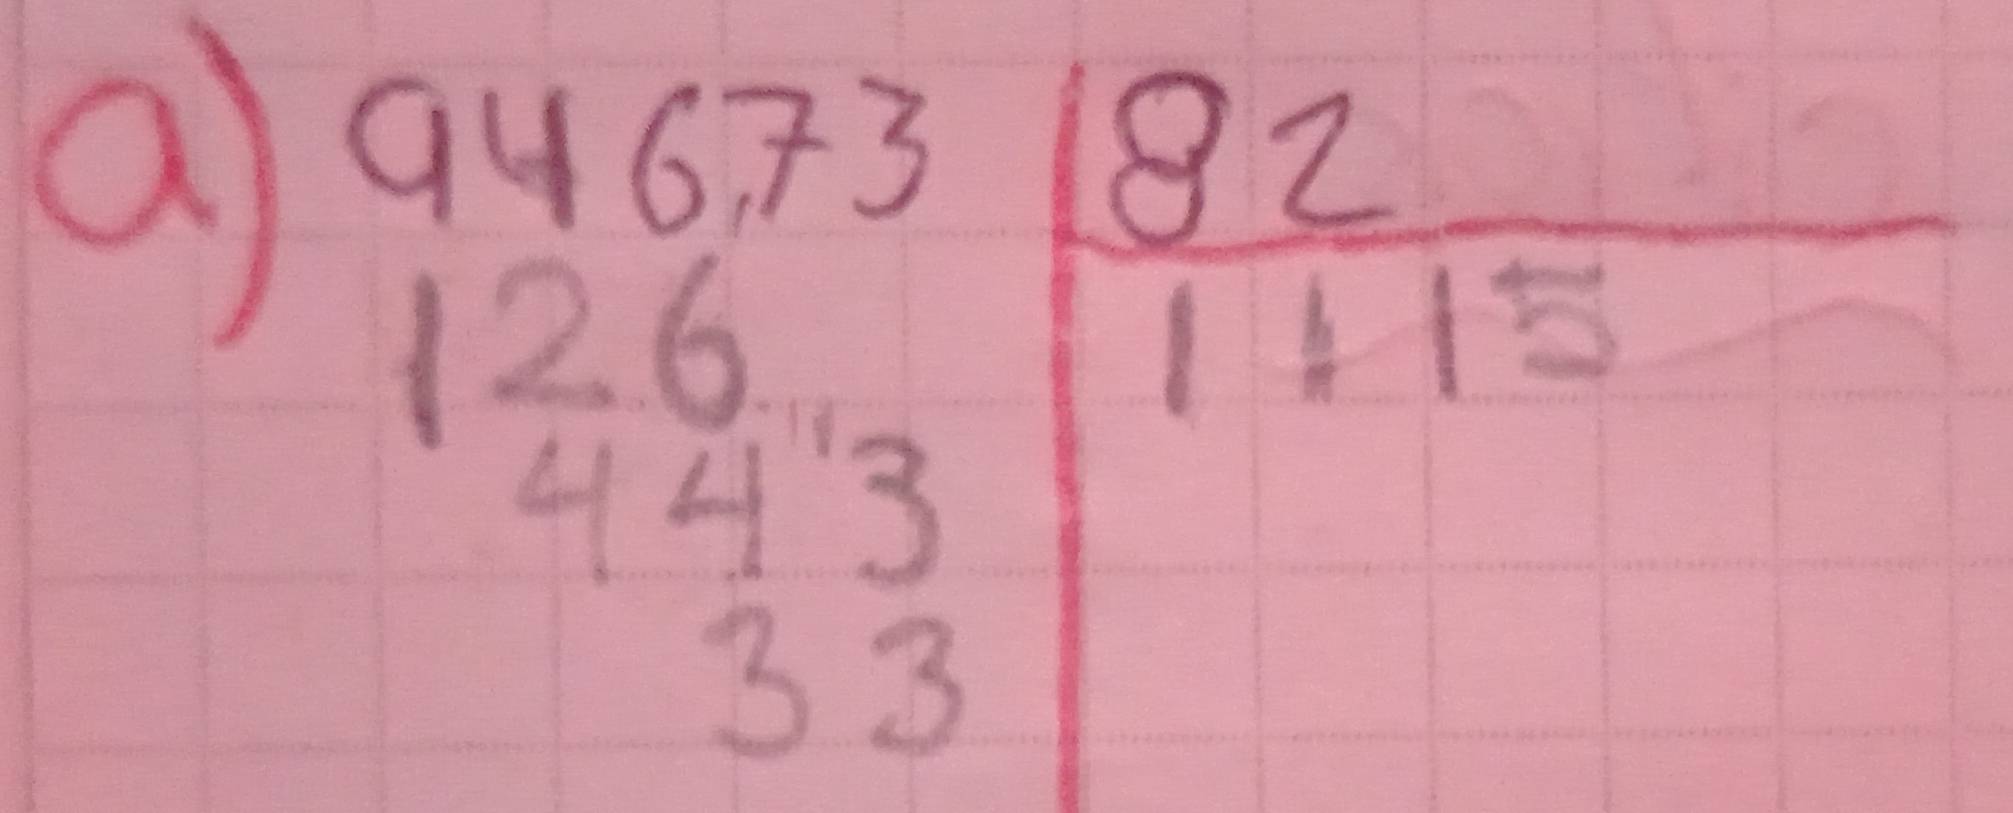 a) 946,73 82
126 1115
44"3
33